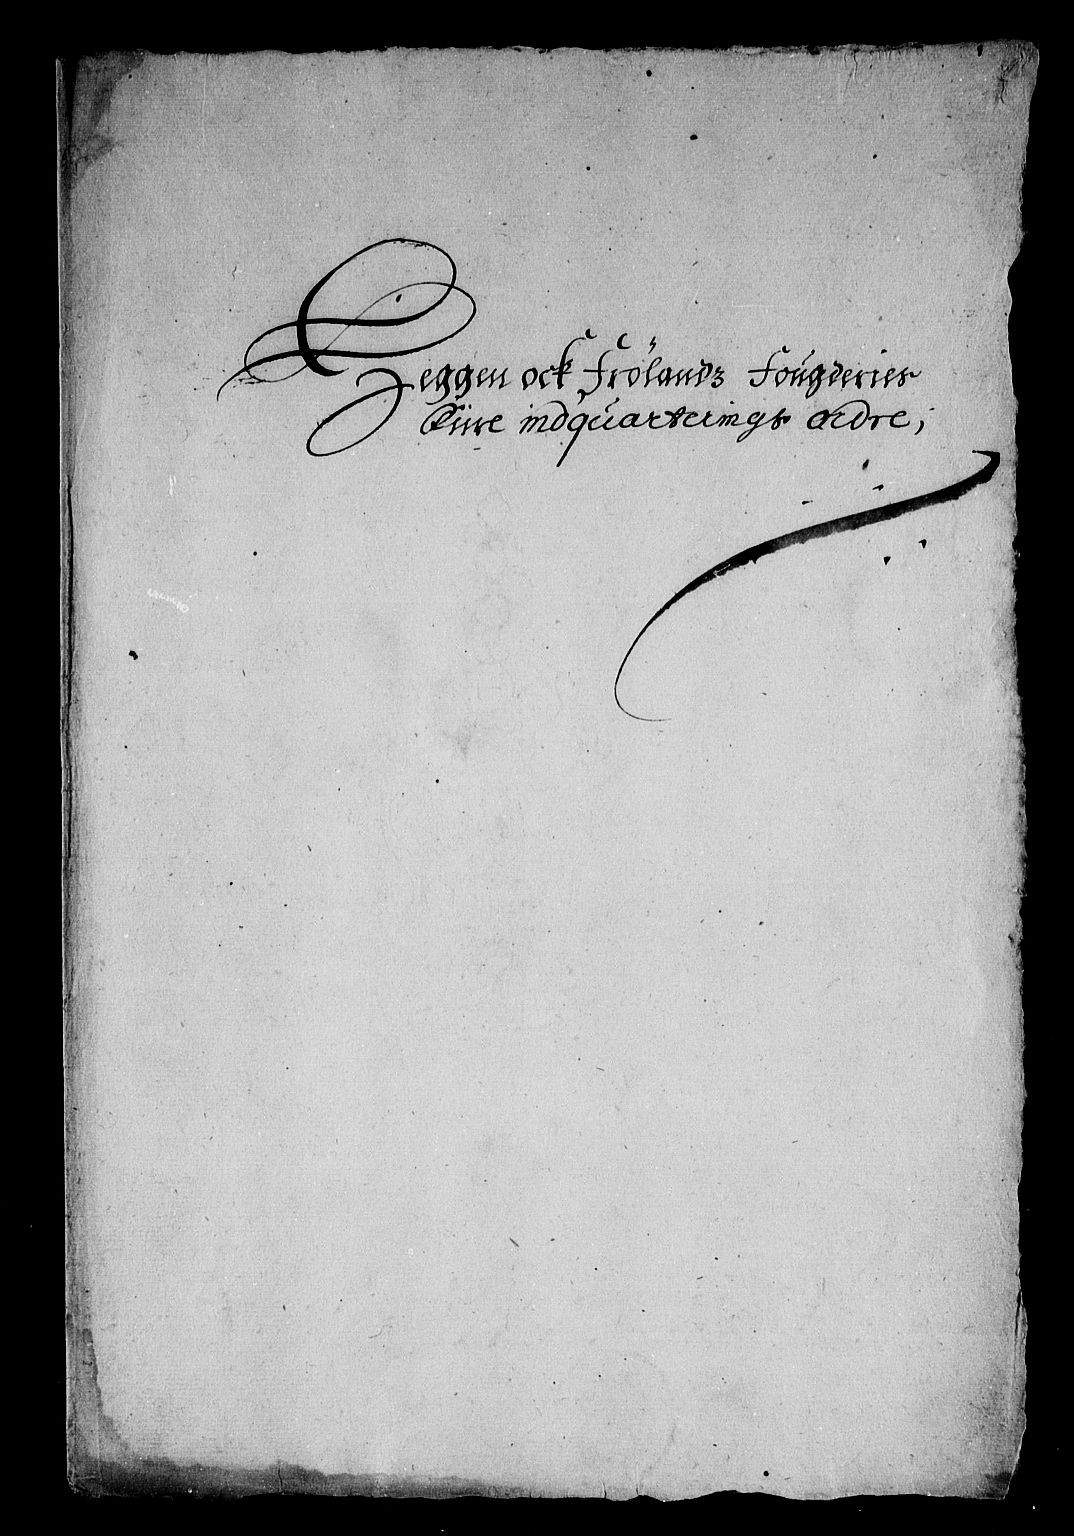 Heggen ock Frölandz Fougderies
indquarterings ordre;